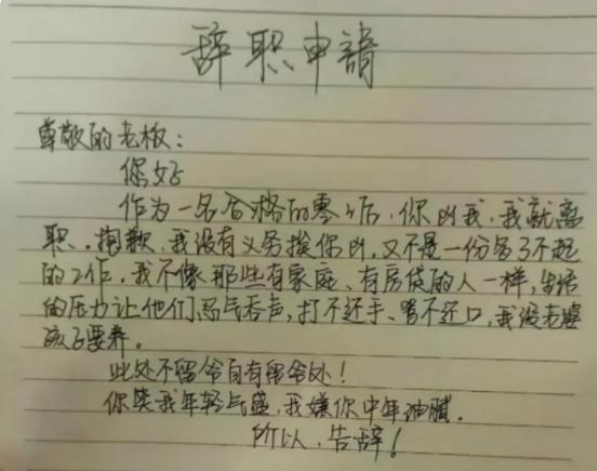 辞职申請
尊敬的老板：
你好
作为一名合格的零0后，你凶我，我就离
职。抱歉，我没有义务挨你凶，又不是一份多了不起
的工作，我不像那些有家庭、有房贷的人一样，生活
的压力让他们忍气吞声，打不还手、骂不还口，我没老婆
孩子要养。
此处不留爷自有留爷处！
你笑我年轻气盛，我嫌你中年油腻。
所以，告辞！